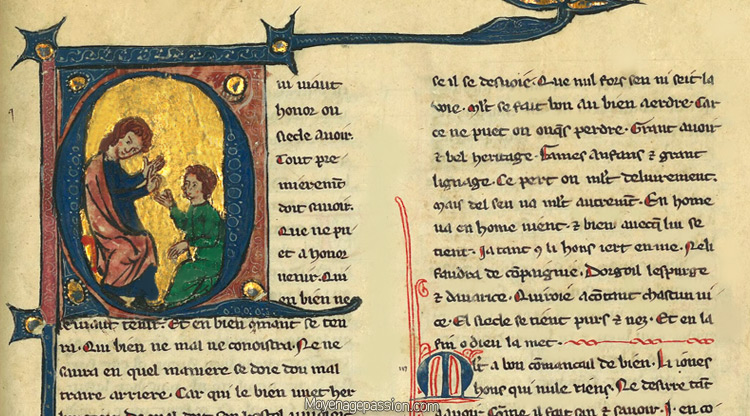 Qui viaut
honor ou
siecle avoir.
Tout pre
mierement
doit savoir.
Que ne pu
et a honor
venir. Qui
en bien ne
se viaut tenir. Et en bien se ten
ra. Qui bien ne mal ne conoistra. Ne ne
saura en quel maniere se doie dou mal
traire arriere. Car qui le bien viaut her
se il se desvoie. Que nul fors sen ni seit la
voie. Mlt se fait bon au bien aerdre. Car
ce ne puet on onqs perdre. Grant avoir
& bel heritage. Fames anfans & grant
lignage. Ce pert on mlt delivrement.
Mais del sen va mlt autrement. En home
va en home vient. & bien avecq lui se
tient. Ja tant q li hons iert en vie. Ne li
faudra de cõpaignie. Dorgoil lespurge
& davarice. acõtant chascun vi
ce. El siecle se tient purs & nez. Et en la
fin o dieu la met.
Mlt a bon de bien. Li iones
hons qui nule riens. Ne desirre tãt
avoir. Cõme il fait sen & savoir.
Moyenagepassion.com